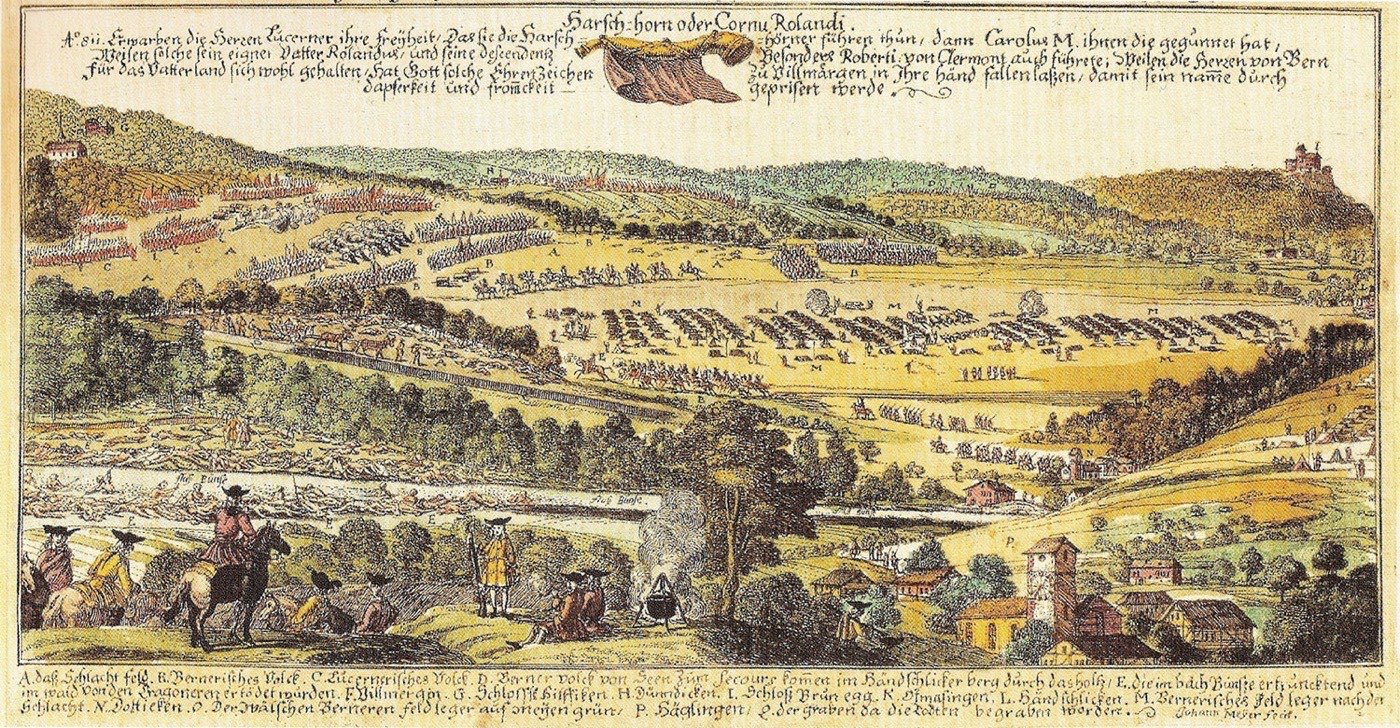 Harsch-horn oder Cornu Rolandi.
Aº 811. Erwarben die Herren Lucerner ihre Freyheit, Das sie die Harsch-hörner führen thun, dann Carolus M. ihnen die gegunnet hat,
Weilen solche sein eigner Vatter Rolandus, und seine descendenz Besonders Roberti von Clermont auch führete; Weilen die Herren von Bern
Für das Vatterland sich wohl gehalten, Hat Gott solche Ehren Zeichen zu Villmärgen in Ihre händ fallen laßen, damit sein name durch
dapferkeit und fromckeit geprisen werde
fluß Buntz
fluß Buntz
A. daß Schlacht feld. B. Bernerisches Volck. C. Lucernerisches Volck. D. Berner volck von Seen zum Secours komen im Händschlicker berg durch das holtz, E. die im bach Buntze ertruncktend und
im wald von den Dragoneren ertödet wurden. F. Villmergen. G. Schlossle hilfiken. H. Dinticken. I. Schloß Brunegg. K. Otmasingen. L. Händschlicken. M. Bernerisches feld leger nach der
Schlacht. N. Dotticken. O. Der Wälschen Berneren feld leger auf meyen grün, P. Häglingen, Q. der graben da die Todten begraben worden. Johann Meyer fecit.